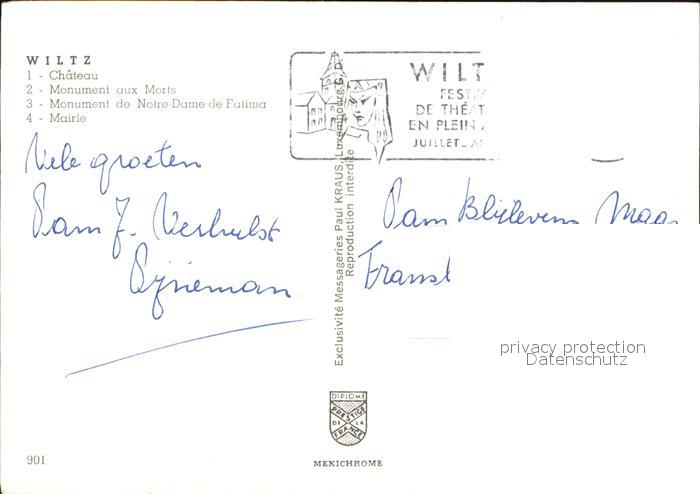 WILTZ
1 - Château
2 - Monument aux Morts
3 - Monument de Notre-Dame de Fatima
4 - Mairie
WILT
FESTIV
DE THÉAT
EN PLEIN A
JUILLET-A
Vele groeten
Fam J. Verhulst
Fam Blijlevens
Exclusivité Messageries Paul KRAUS, Luxembourg
Reproduction interdite
privacy protection
Datenschutz
DIPLOME
PRESTIGE
DE LA
FRANCE
901
MEXICHROME